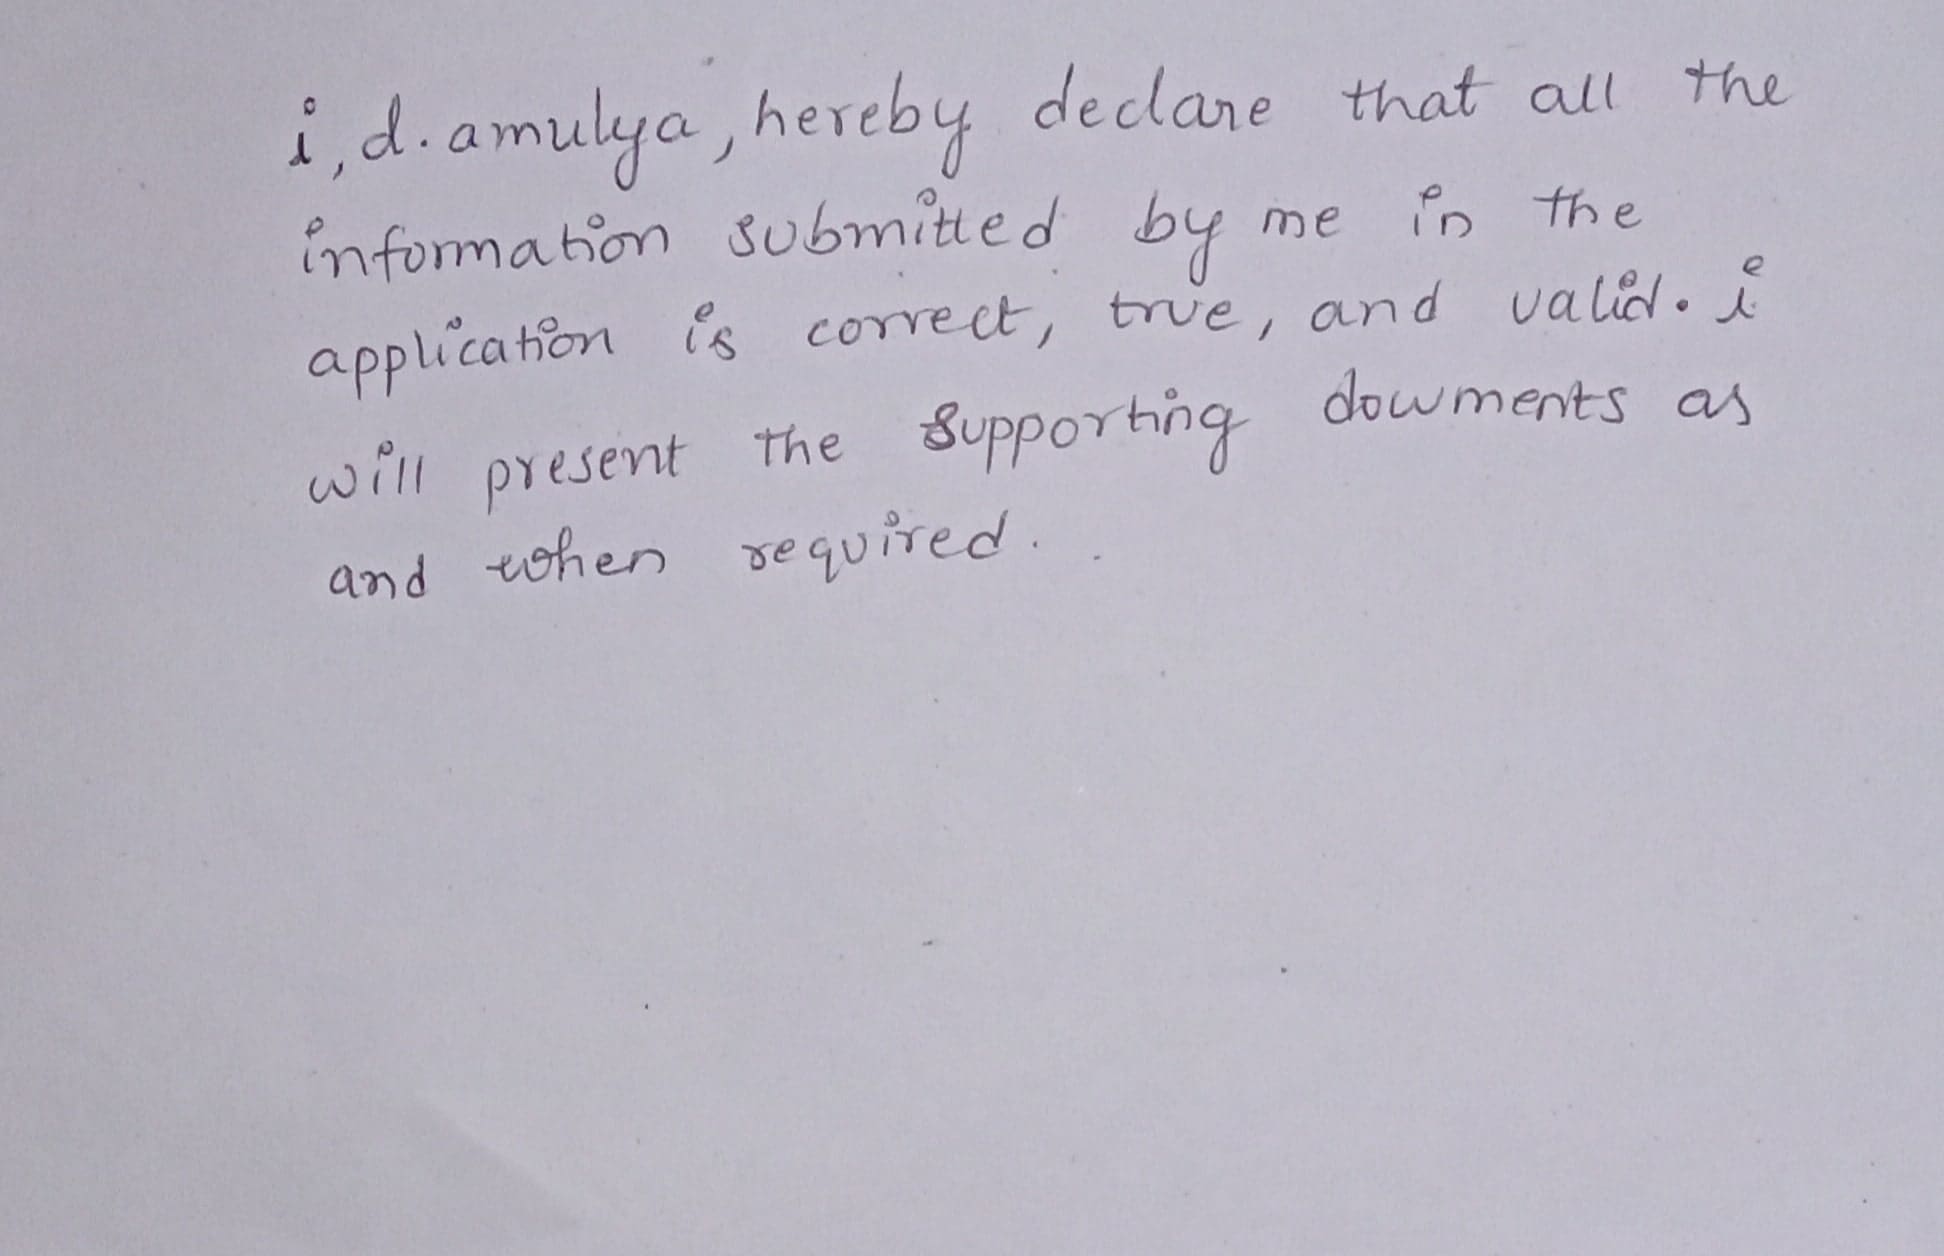 i, d. amulya, hereby declare that all the
information submitted by me in the
application is correct, true, and valid. i
will present the supporting documents as
and when required.